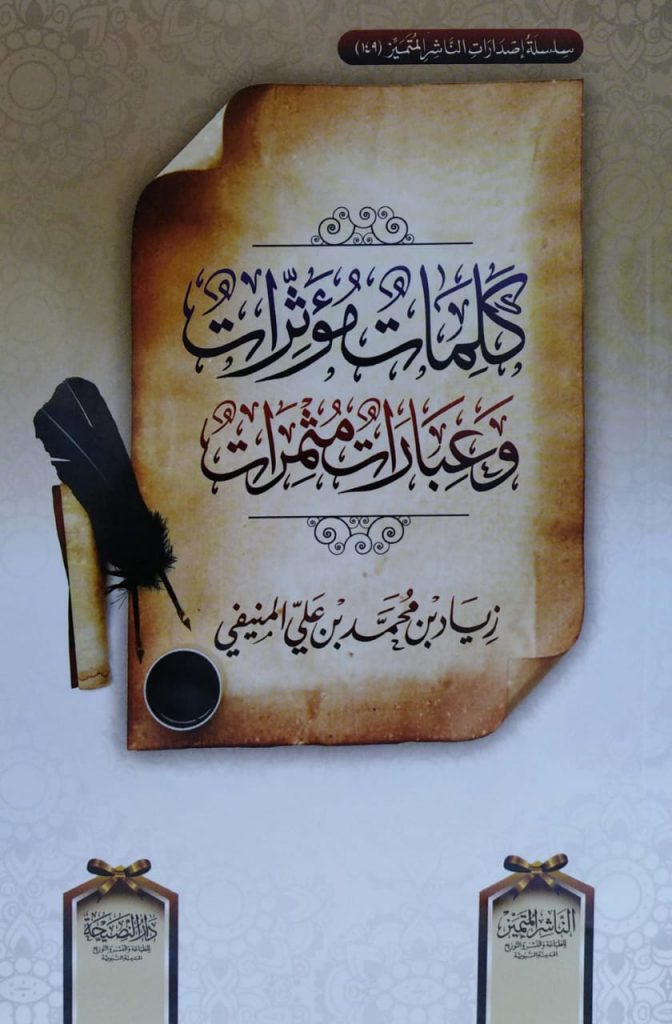 سِلسِلَةُ إصْدَارَاتِ النَّاشِرِ المُتَمَيِّزِ (١٤٩)
كَلِمَاتٌ مُؤَثِّرَاتٌ
وَعِبَارَاتٌ مُثْمِرَاتٌ
زِيَاد بْن مُحَمَّد بْن عَلِيّ المنيفي
النَّاشِر المُتَمَيِّز
للطباعة والنشر والتوزيع
المدينة النبوية
دَارُ النَّصِيحَة
للطباعة والنشر والتوزيع
المدينة النبوية